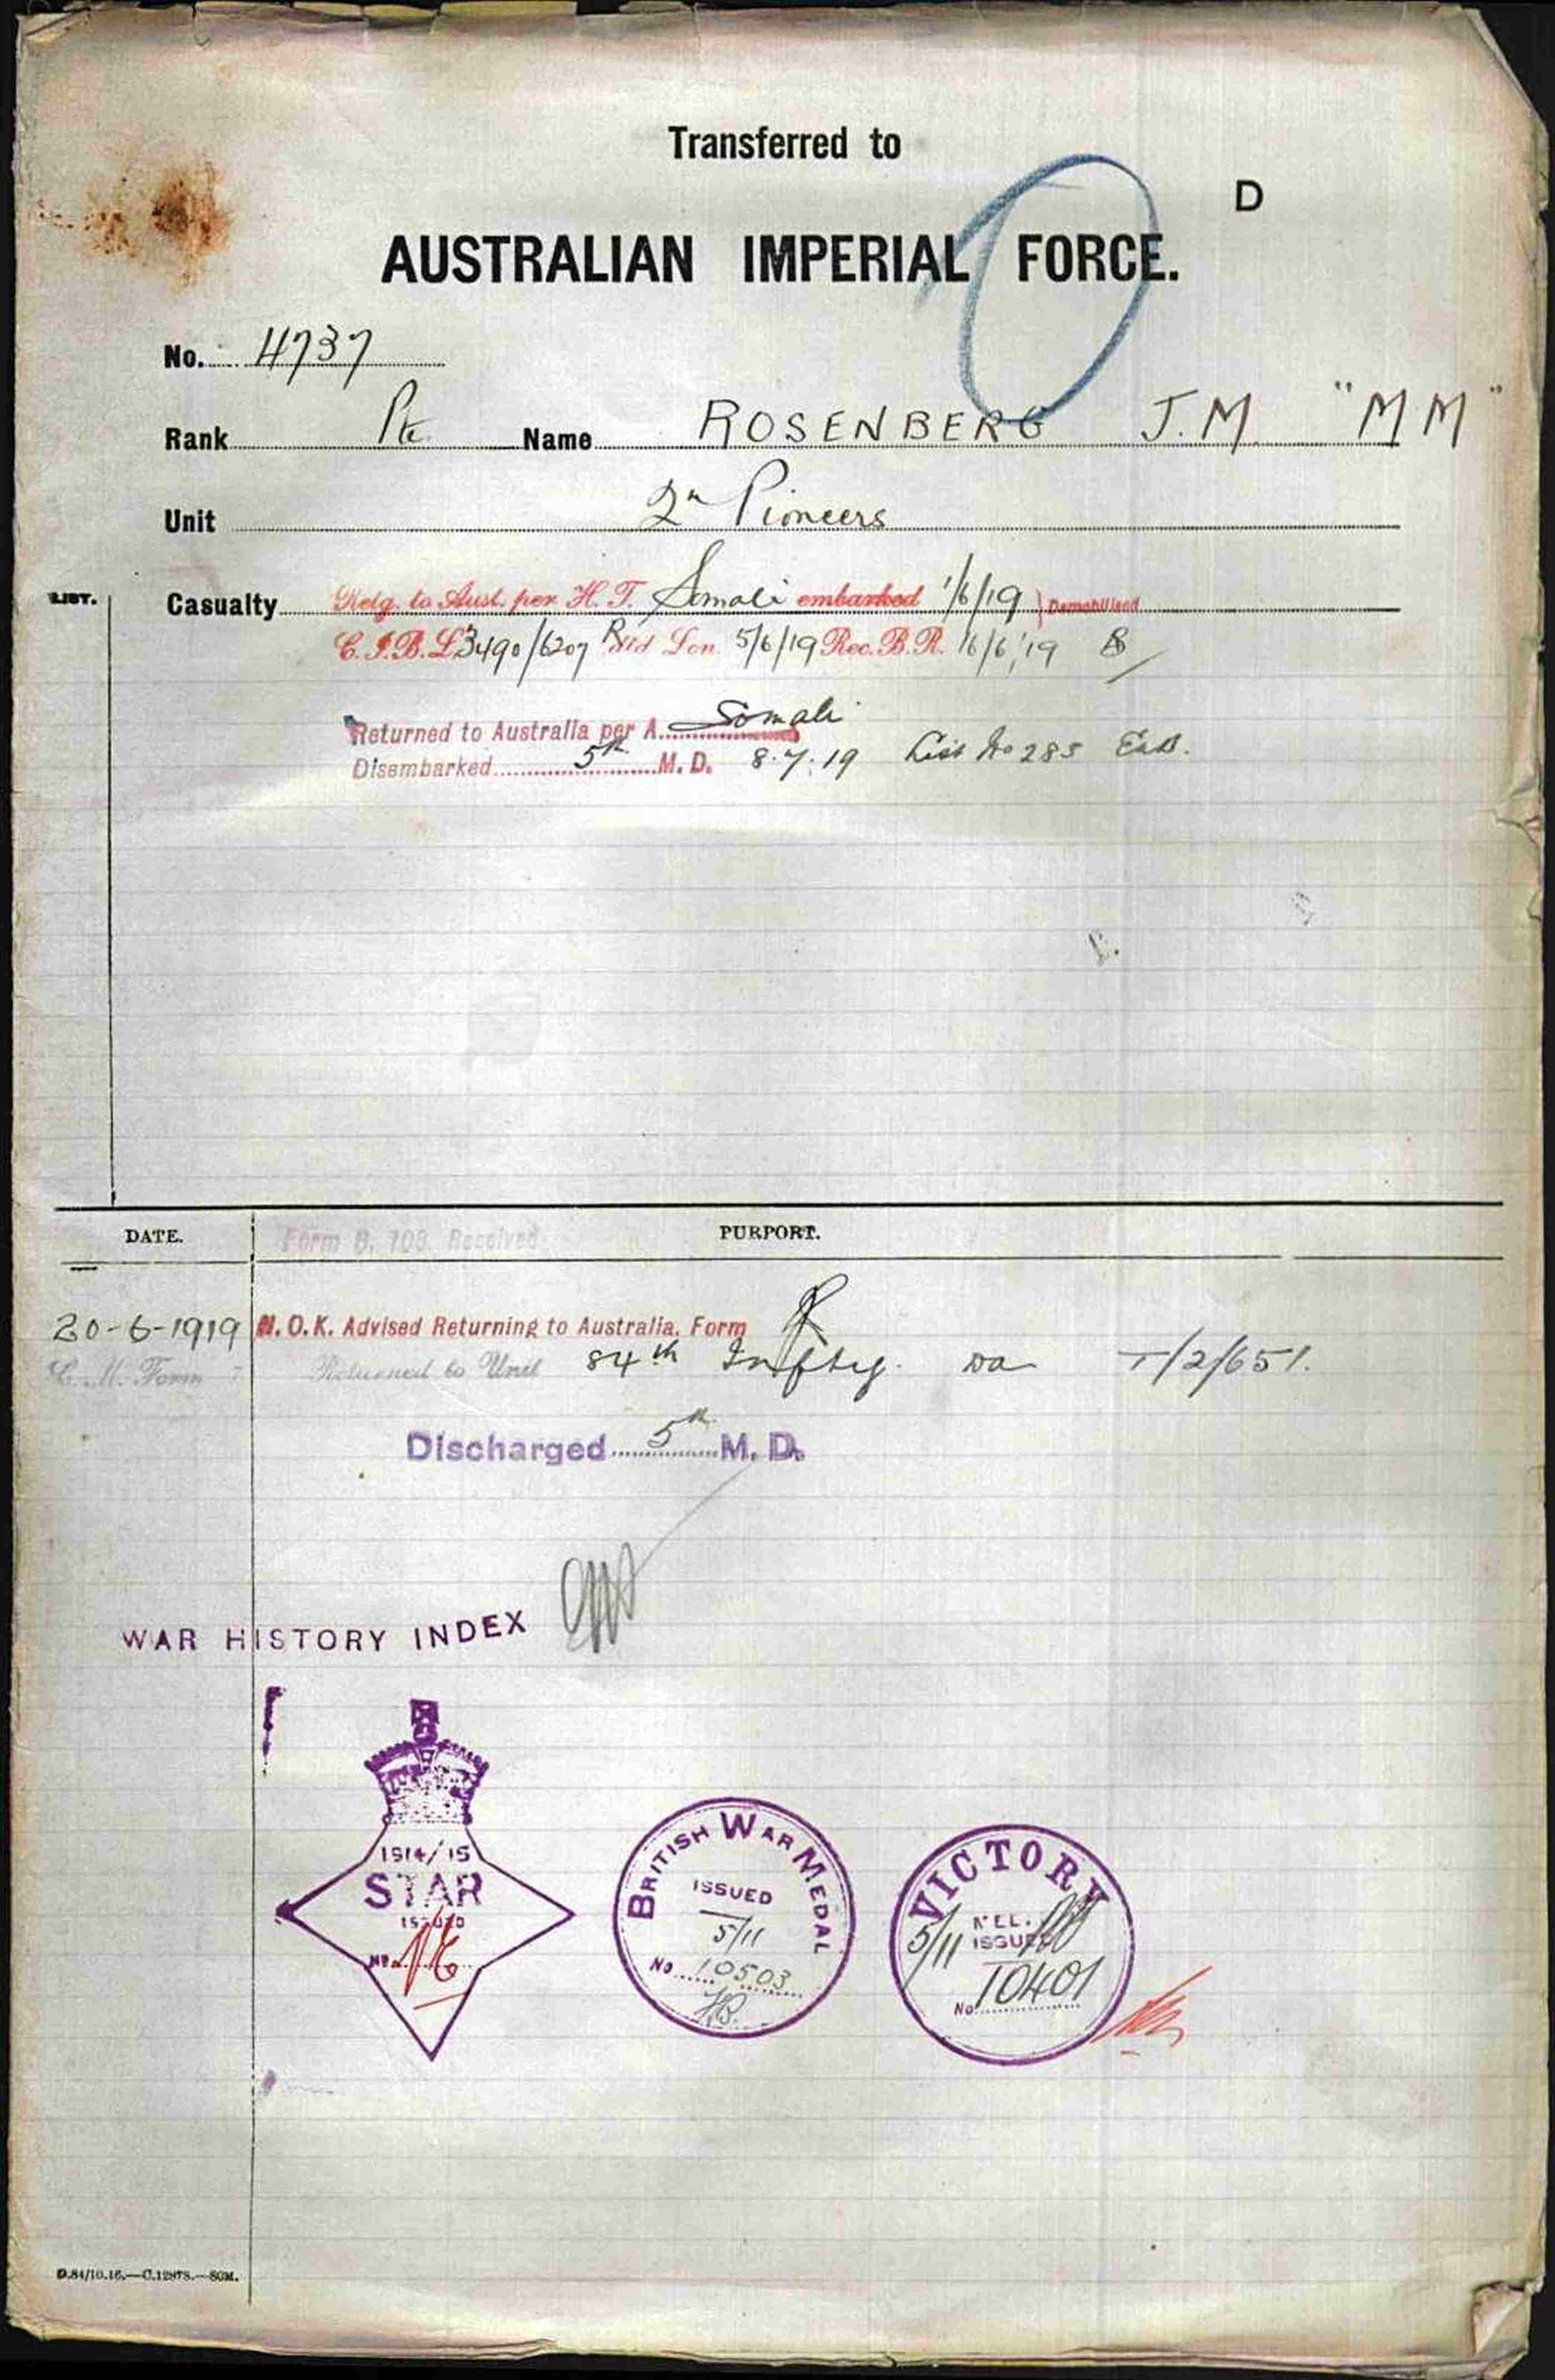 Transferred to
D
AUSTRALIAN IMPERIAL FORCE.
No. 4737
Rank Pte Name ROSENBERG J.M "MM"
Unit 2n Pioneers
LIST.
Casualty Retg. to Aust. per H. T. Somali embarked 1/6/19 Demobilised
C.I.B.L 3490/6207 Lon 5/6/19 Rec. B.R. 16/6/19
Returned to Australia per A Somali
Disembarked 5th M. D. 8.7.19 List No 285
DATE. Form B. 103. Received PURPORT.
20-6-1919 N.O.K. Advised Returning to Australia. Form
Form Returned to Unit 84th Inftry. WA T/2/651.
Discharged 5th M. D.
WAR HISTORY INDEX
1914/15
STAR
ISSUED
No. NE
BRITISH WAR MEDAL
ISSUED
5/11
No 10503
VICTORY
MEL.
5/11 ISSUED
10401
No
D.84/10.16.—C.12878.—50M.